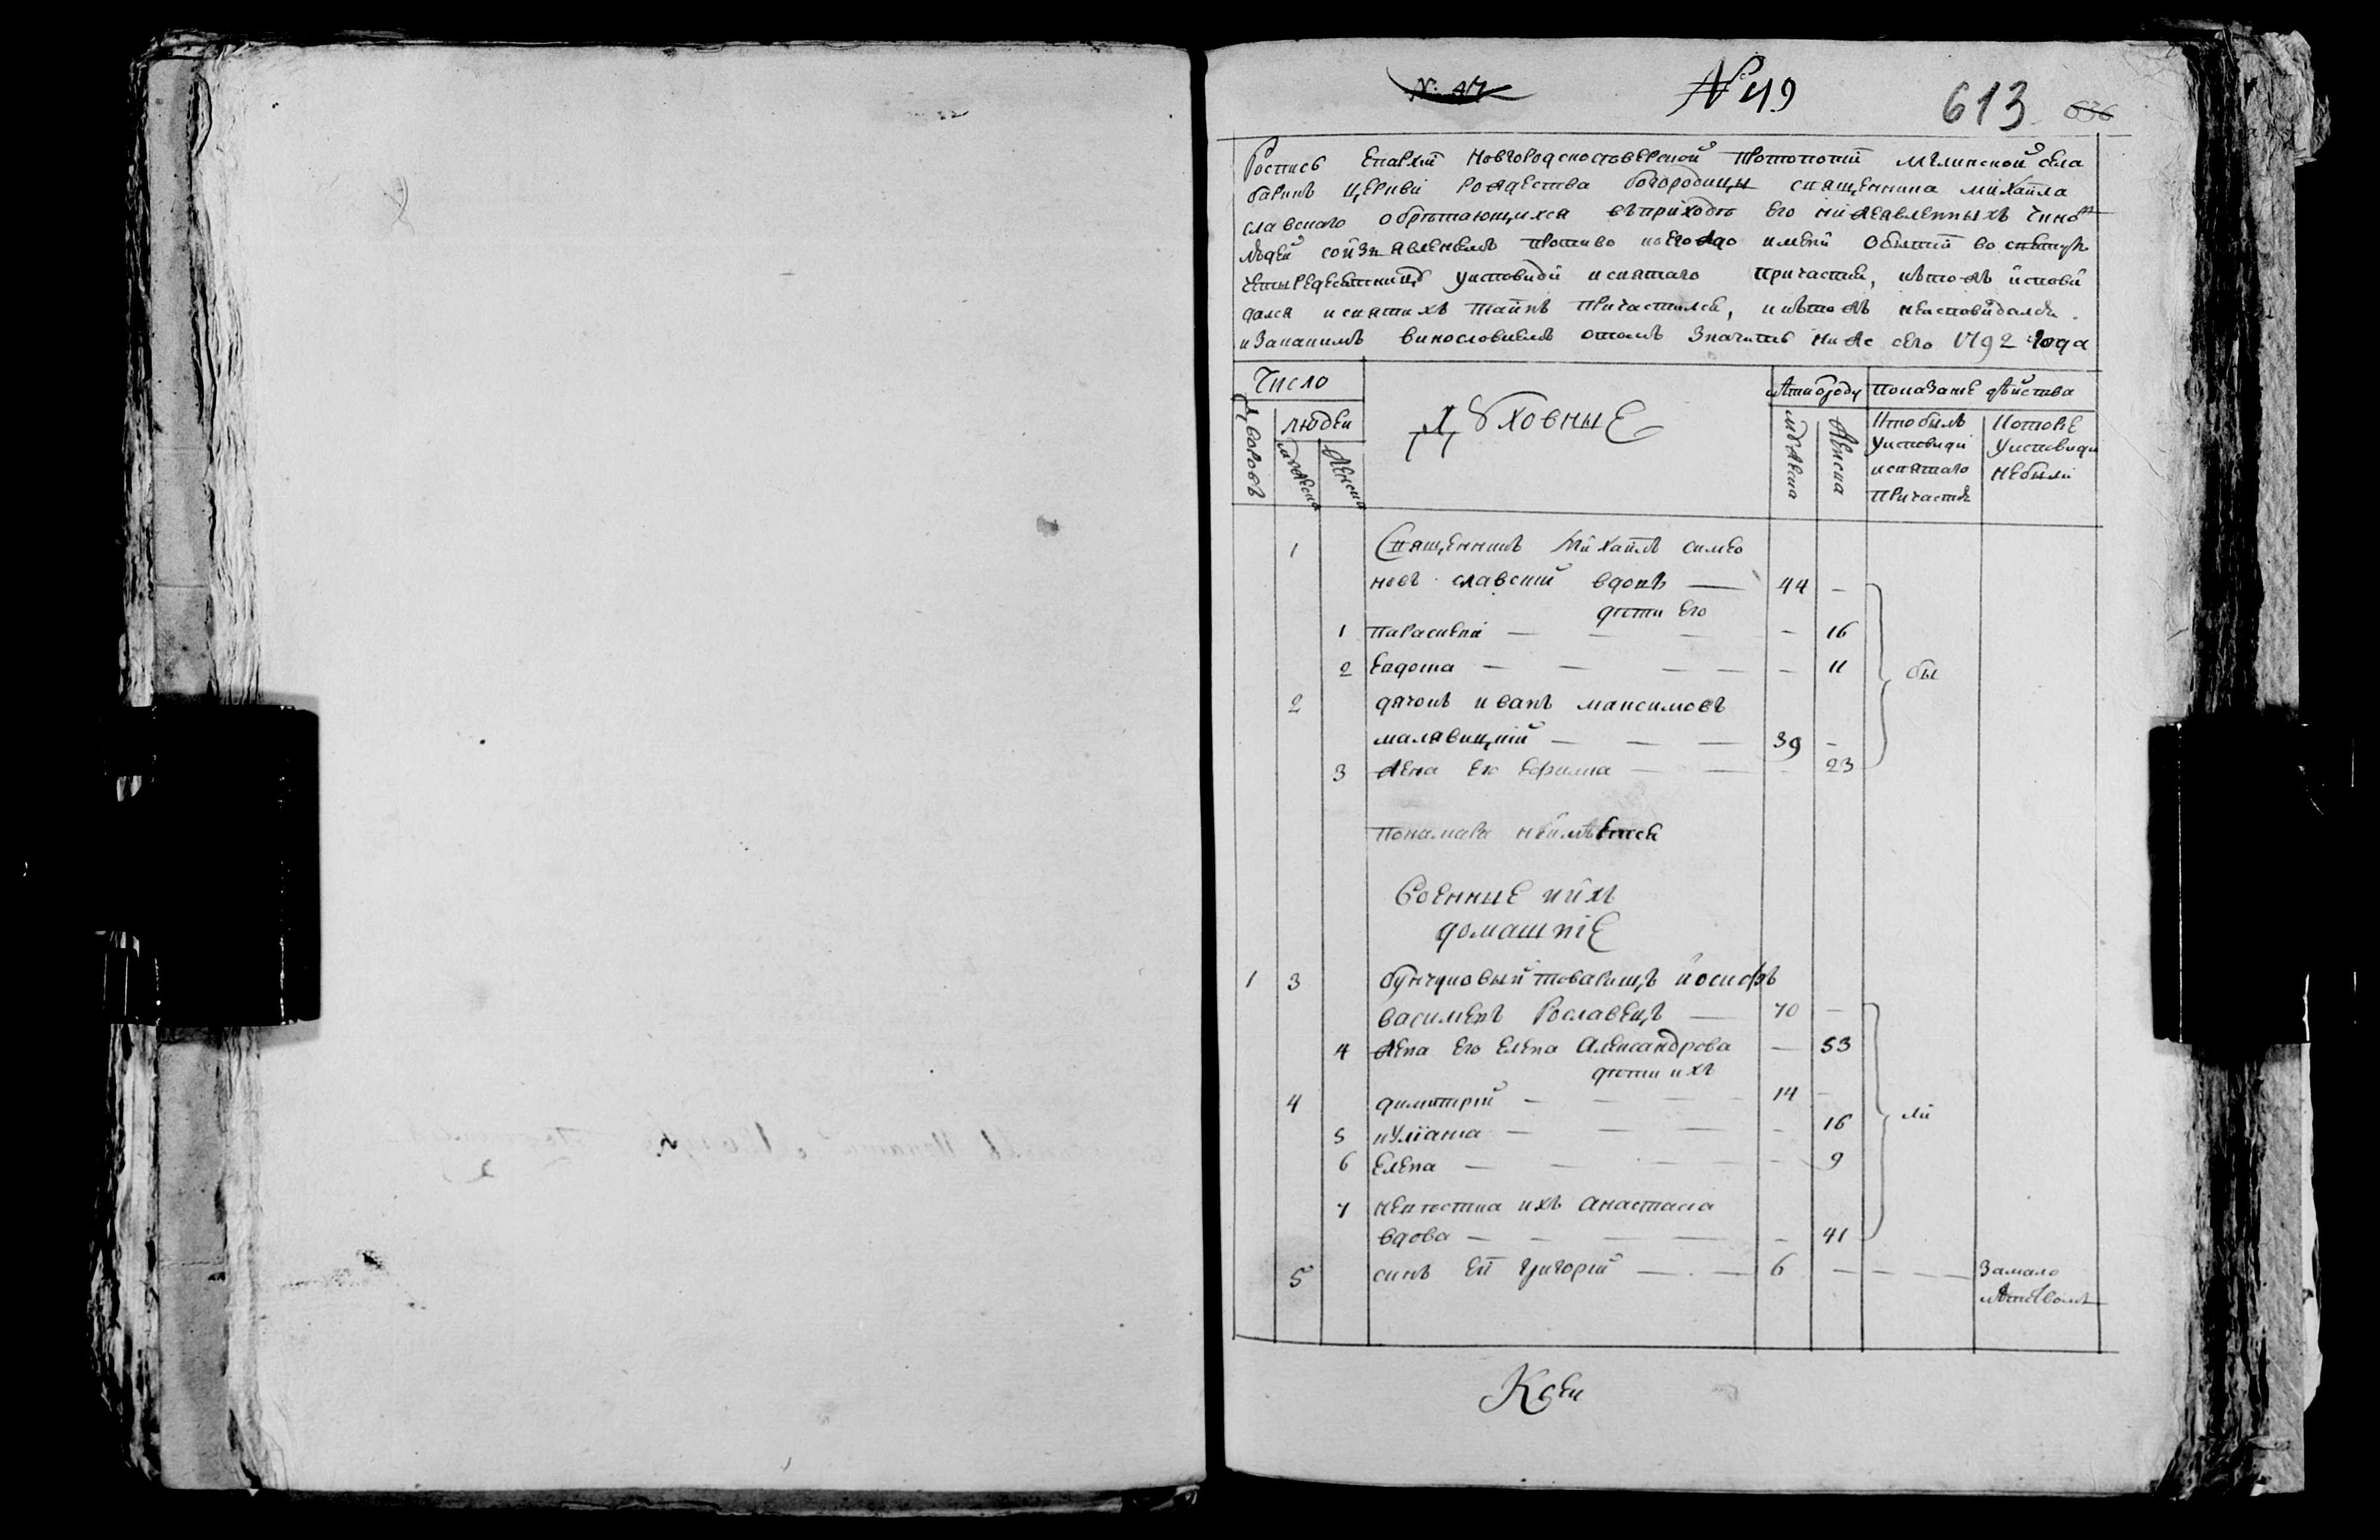 N. 47 N 49 613 636
Роспись Епархіи Новгородскосѣверской Протопопіи Мглинской села
церкви Рождества богородицы священника михаила
славского обрѣтающихся въприходѣ его нижеявленныхъ чино
людей соизъявлениемъ противо коегождо имени о бытии во святую
четыредесятницу уисповиди исвятаго причастия, ктожъ исповѣ
дался исвятихъ таинъ причастился, иктожъ неисповѣдался
изакакимъ винословиемъ отомъ значитъ ниже сего 1792 года
Число
дворовъ
людей
мужеска
женска
Духовные
лѣтиотроду
мужеска
женска
показание дѣйства
Кто былъ
уисповиди
исвятаго
причастия
Которѣ
уисповиди
небыли
1 Священникъ Михаилъ симео
новъ славский вдовъ — 44 —
дѣти его
1 параскевия — — — — 16
2 Евдокиа — — — — — 11 бы
2 дячокъ иванъ максимовъ
малявицкий — — — 39 —
3 жена его Ефимиа — — — 23
понамаря неимѣется
Военные иихъ
домашние
1 3 бунчуковый товарищъ иосифъ
василиевъ Рославецъ — 70 —
4 жена его елена Александрова — 53
дѣти ихъ
4 димитрий — — — 14 —
5 иулиана — — — — 16 ли
6 Елена — — — — — 9
7 невѣстка ихъ анастасиа
вдова — — — — — 41
5 синъ еи григорий — — 6 — — — Замало
лѣтствомъ
Ксеи